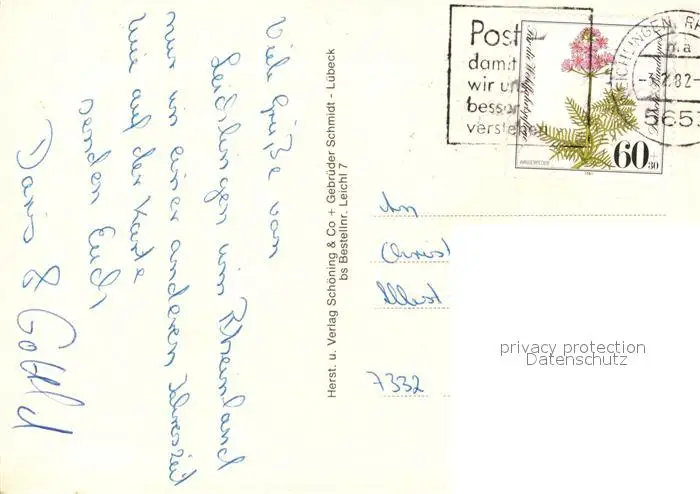 Viele Grüße vom
Leichlingen im Rheinland
nur in einer anderen Jahreszeit
wie auf der Karte
senden Euch
Doris &
Herst. u. Verlag Schöning & Co + Gebrüder Schmidt - Lübeck
bs Bestellnr. Leichl 7
Post
damit
wir un
besser
verstehen
LEICHLINGEN, RH
ma
82-
565
Für die Wohlfahrtspflege
Deutsche Bundespost
WASSERFEDER
1981
60
+30
An
Christ
Albst
7332
privacy protection
Datenschutz